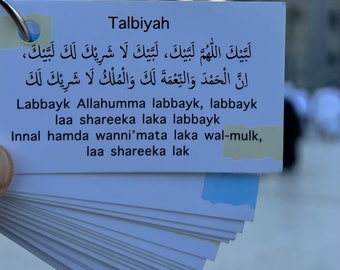 Talbiyah
لَبَّيْكَ اللَّهُمَّ لَبَّيْكَ، لَبَّيْكَ لَا شَرِيْكَ لَكَ لَبَّيْكَ،
اِنَّ الْحَمْدَ وَالنِّعْمَةَ لَكَ وَالْمُلْكَ لَا شَرِيْكَ لَكَ
Labbayk Allahumma labbayk, labbayk
laa shareeka laka labbayk
Innal hamda wanni'mata laka wal-mulk,
laa shareeka lak